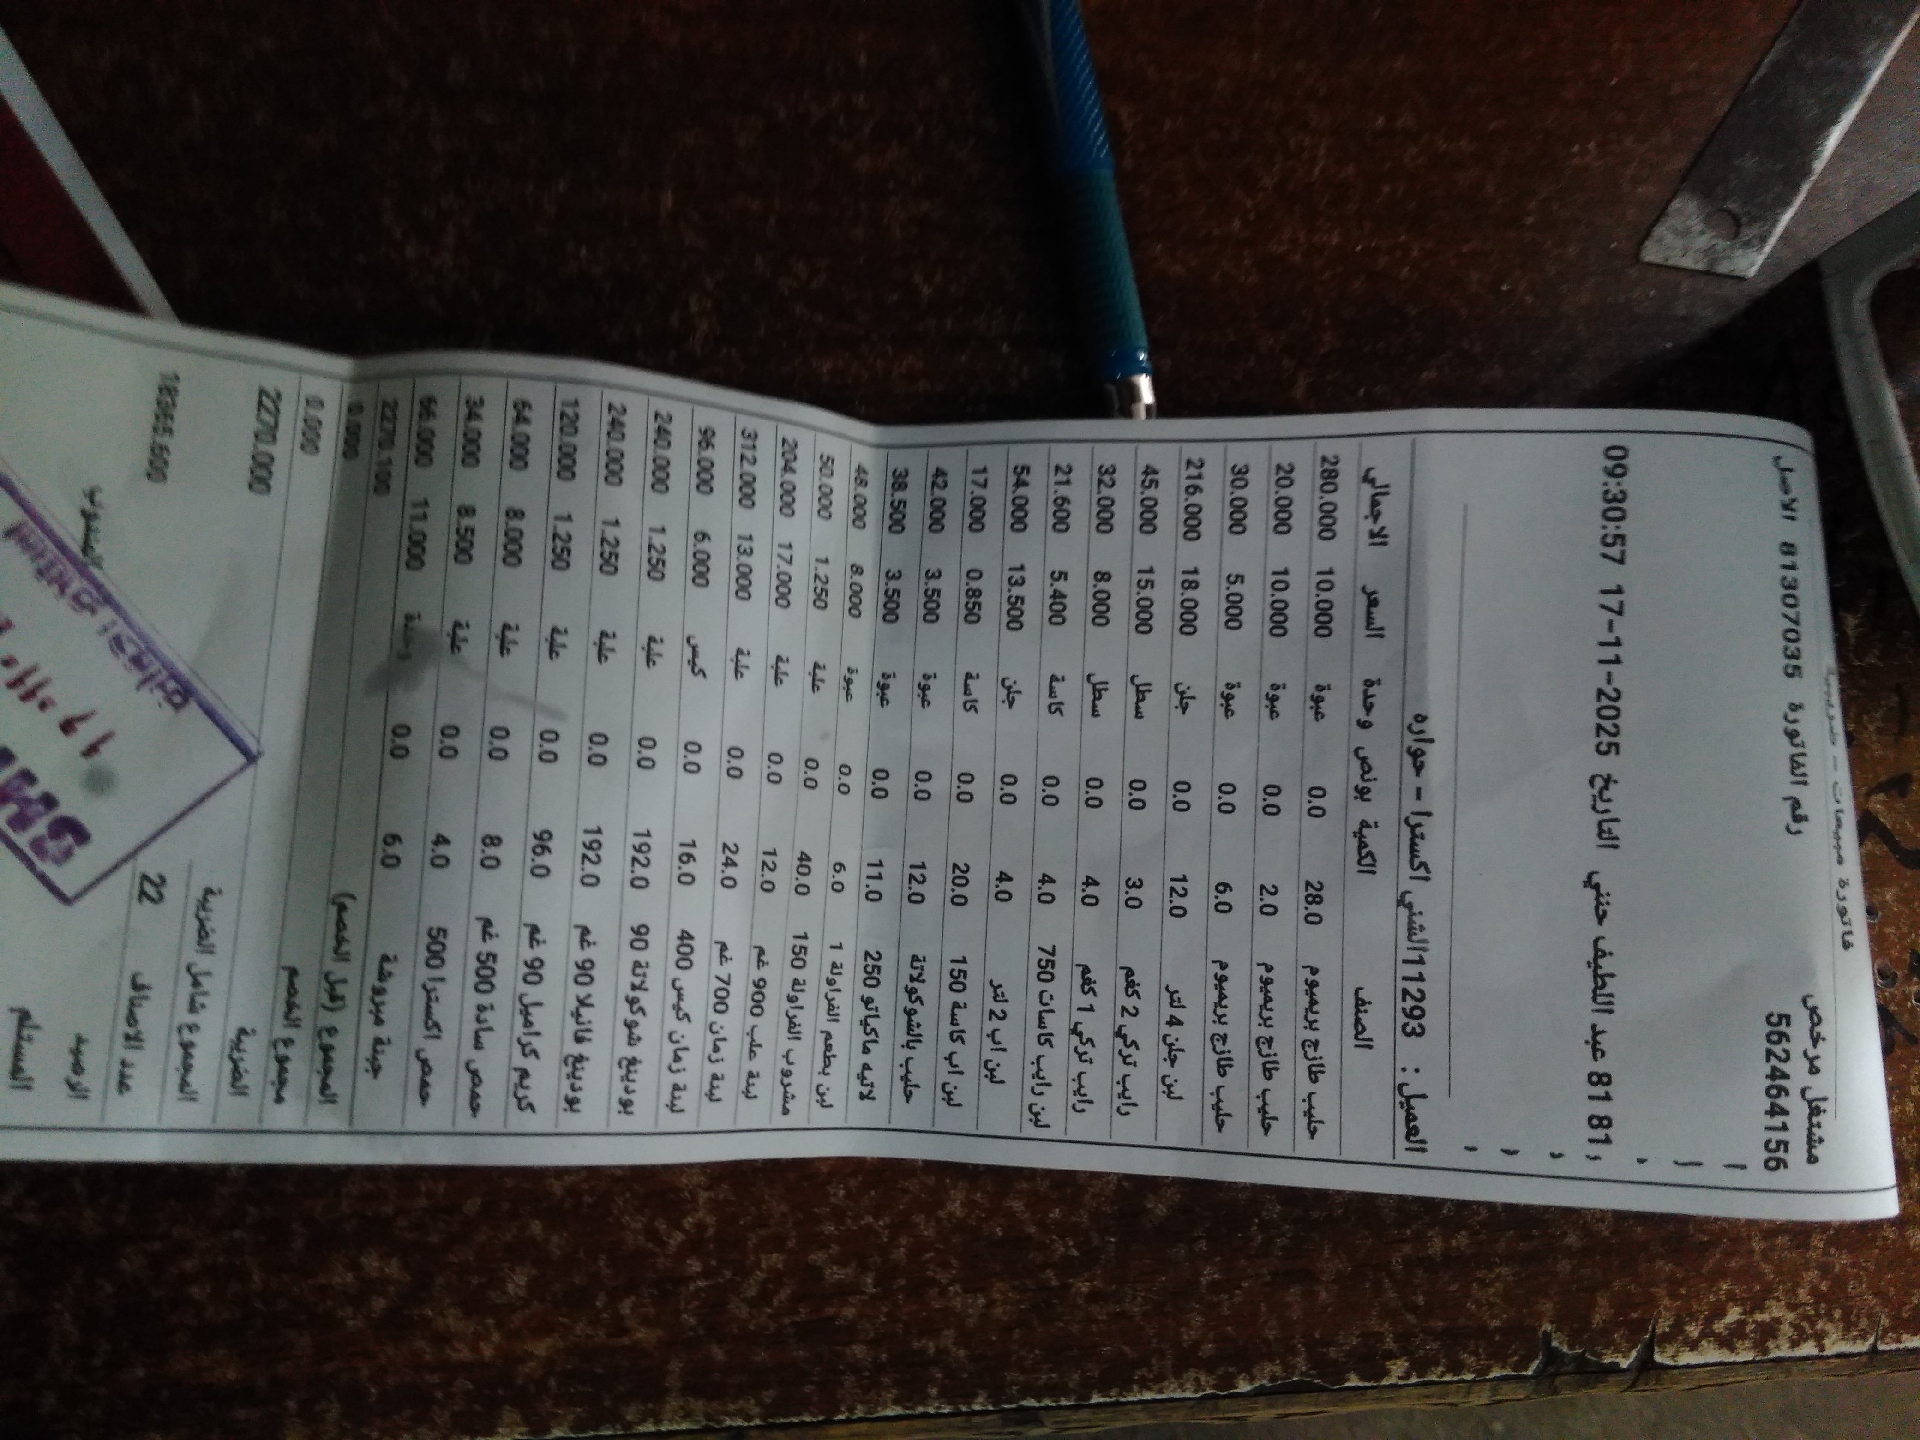 فاتورة مبيعات - ضريبية
مشتغل مرخص 562464156
رقم الفاتورة 81307035 الاصل
81 81 عبد اللطيف حنني التاريخ 17-11-2025 09:30:57
العميل : 11293الشني اكسترا - حواره
الصنف الكمية بونص وحدة السعر الاجمالي
حليب طازج بريميوم 28.0 0.0 عبوة 10.000 280.000
حليب طازج بريميوم 2.0 0.0 عبوة 10.000 20.000
حليب طازج بريميوم 6.0 0.0 عبوة 5.000 30.000
لبن جلن 4 لتر 12.0 0.0 جلن 18.000 216.000
رايب تركي 2 كغم 3.0 0.0 سطل 15.000 45.000
رايب تركي 1 كغم 4.0 0.0 سطل 8.000 32.000
لبن رايب كاسات 750 4.0 0.0 كاسة 5.400 21.600
لبن اب 2 لتر 4.0 0.0 جلن 13.500 54.000
لبن اب كاسة 150 20.0 0.0 كاسة 0.850 17.000
حليب بالشوكولاتة 12.0 0.0 عبوة 3.500 42.000
لاتيه ماكياتو 250 11.0 0.0 عبوة 3.500 38.500
لبن بطعم الفراولة 1 6.0 0.0 عبوة 8.000 48.000
مشروب الفراولة 150 40.0 0.0 علبة 1.250 50.000
لبنة علب 900 غم 12.0 0.0 علبة 17.000 204.000
لبنة زمان 700 غم 24.0 0.0 علبة 13.000 312.000
لبنة زمان كيس 400 16.0 0.0 كيس 6.000 96.000
بودينغ شوكولاتة 90 192.0 0.0 علبة 1.250 240.000
بودينغ فانيلا 90 غم 192.0 0.0 علبة 1.250 240.000
كريم كراميل 90 غم 96.0 0.0 علبة 1.250 120.000
حمص سادة 500 غم 8.0 0.0 علبة 8.000 64.000
حمص اكسترا 500 4.0 0.0 علبة 8.500 34.000
جبنة مبروشة 6.0 0.0 وحدة 11.000 66.000
المجموع (قبل الخصم) 2270.100
مجموع الخصم 0.000
الضريبة 0.000
المجموع شامل الضريبة 2270.000
عدد الاصناف 22
الرصيد 18365.600
المستلم المندوب